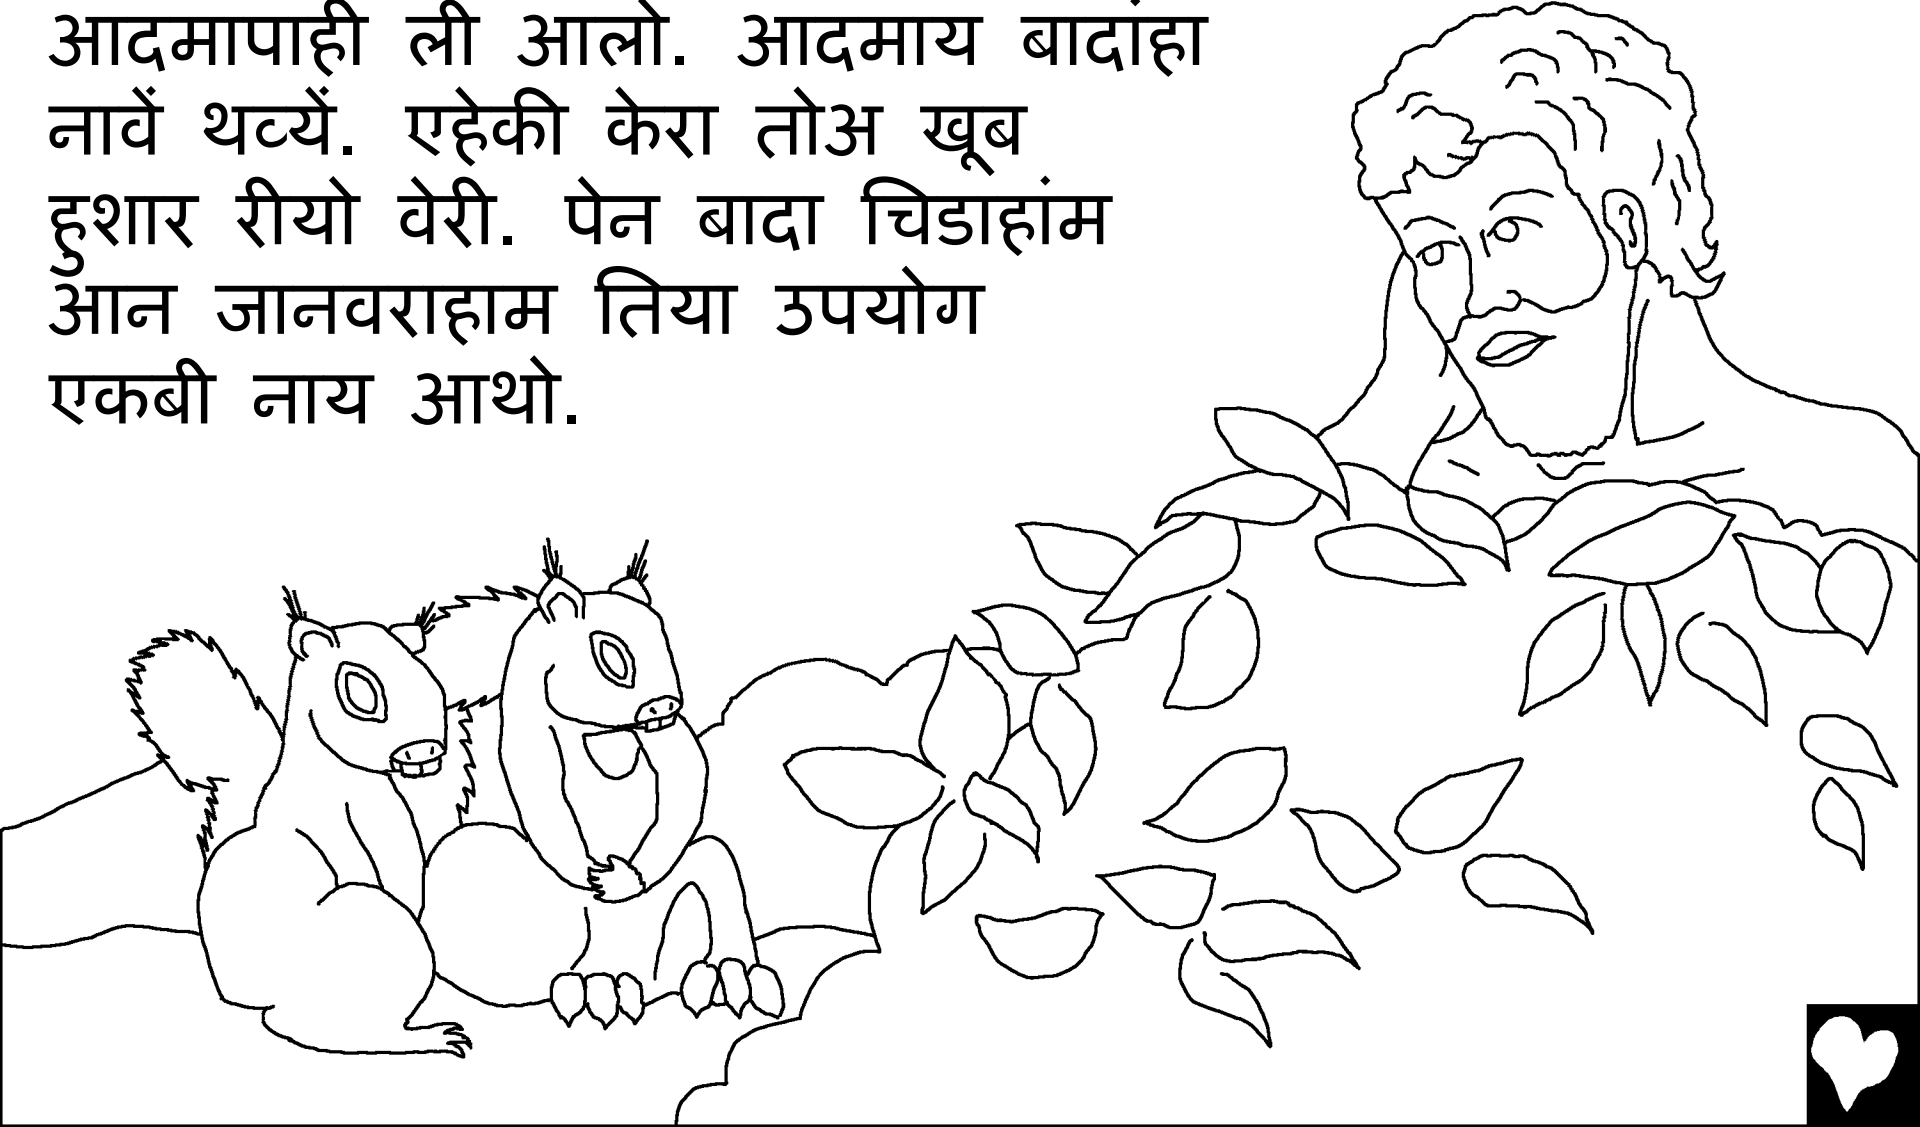 आदमापाही ली आलो. आदमाय बादांहा
नावें थव्यें. एहेकी केरा तोअ खूब
हुशार रीयो वेरी. पेन बादा चिडाहांम
आन जानवराहाम तिया उपयोग
एकबी नाय आथो.